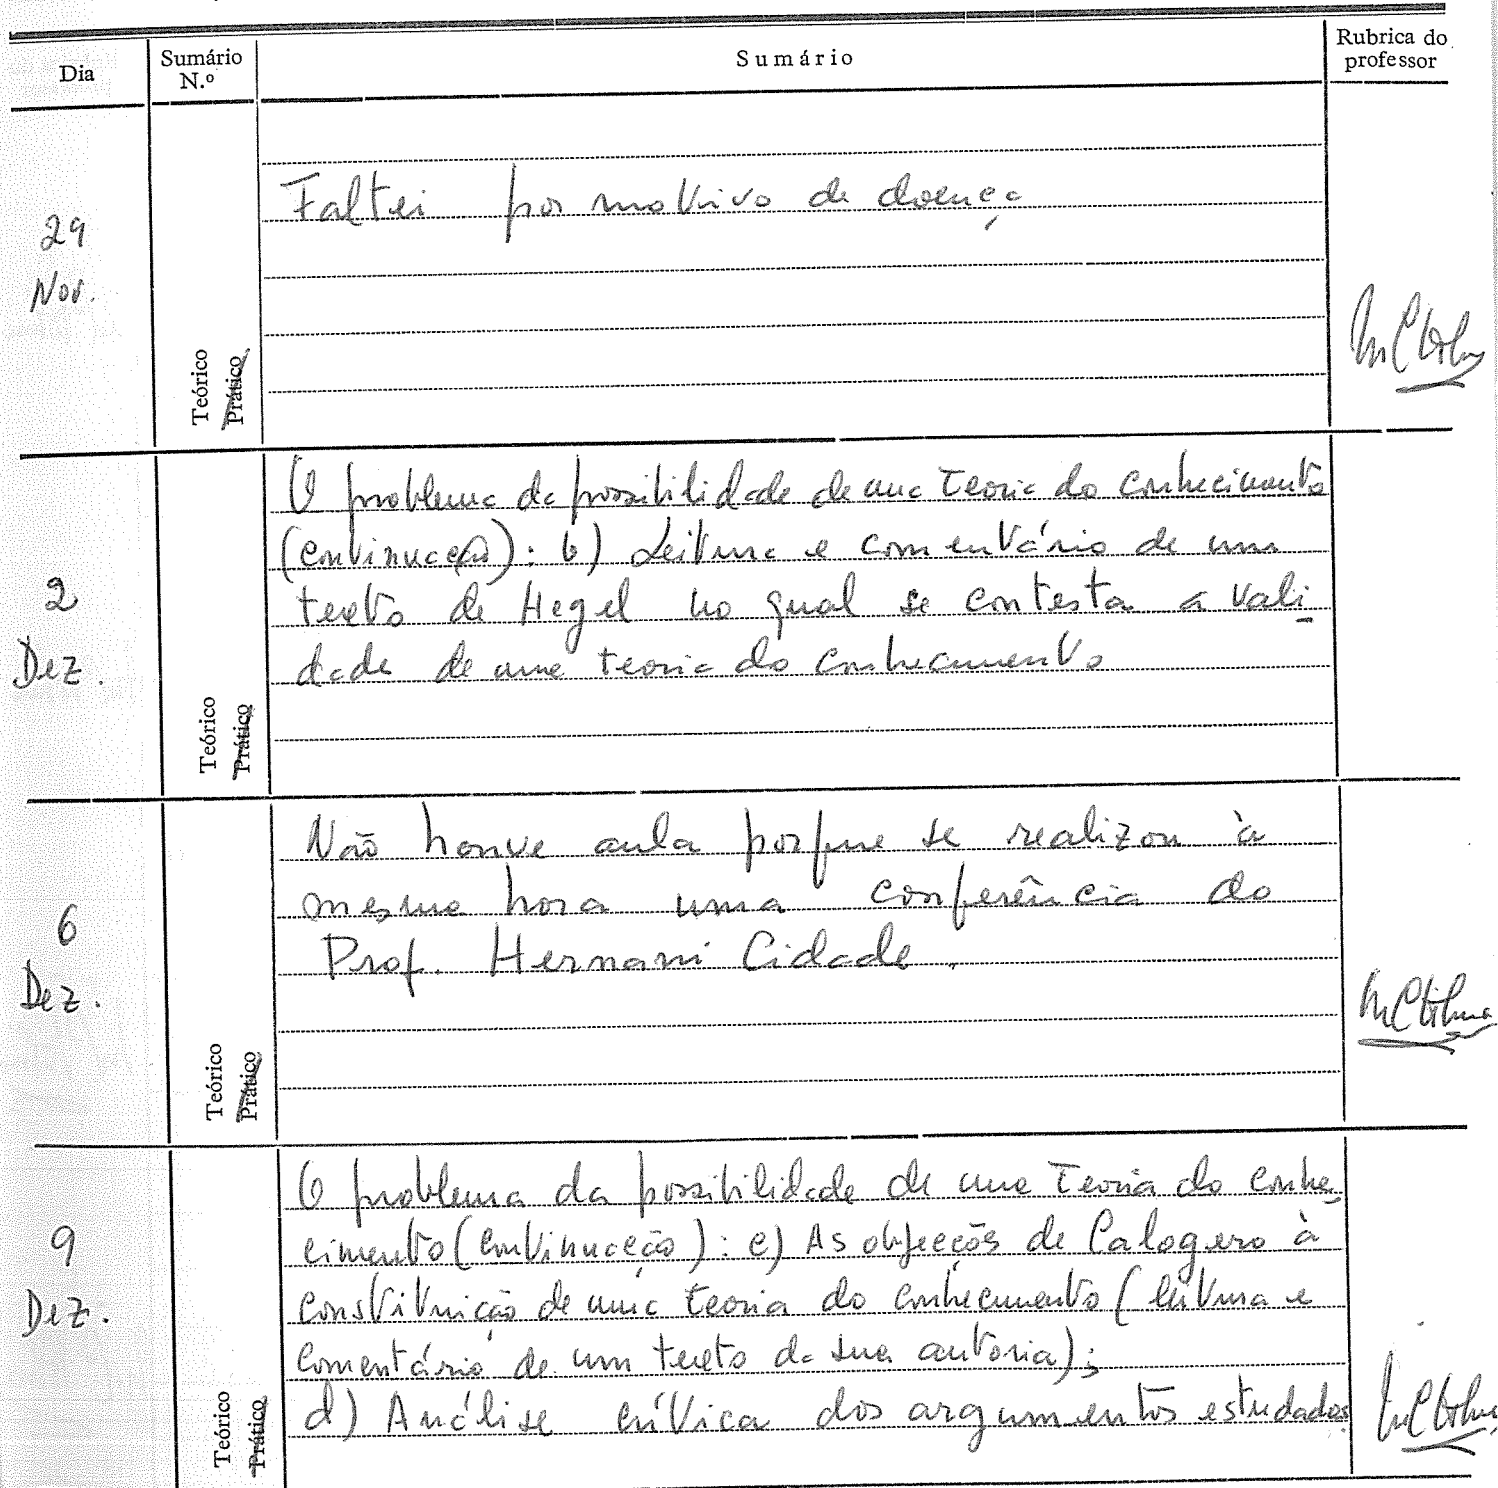 Dia
Sumário N.º
Sumário
Rubrica do professor
29 Nov.
Teórico
Prático
Faltei por motivo de doença
2 Dez.
Teórico
Prático
O problema da possibilidade de uma Teoria do conhecimento
(continuação): b) Leitura e comentário de um
texto de Hegel no qual se contesta a vali-
dade de uma teoria do conhecimento
6 Dez.
Teórico
Prático
Não houve aula porque se realizou à
mesma hora uma conferência do
Prof. Hernani Cidade.
9 Dez.
Teórico
Prático
O problema da possibilidade de uma Teoria do conhe-
cimento (continuação): c) As objecções de Calogero à
constituição de uma teoria do conhecimento (leitura e
comentário de um texto da sua autoria);
d) Análise crítica dos argumentos estudados